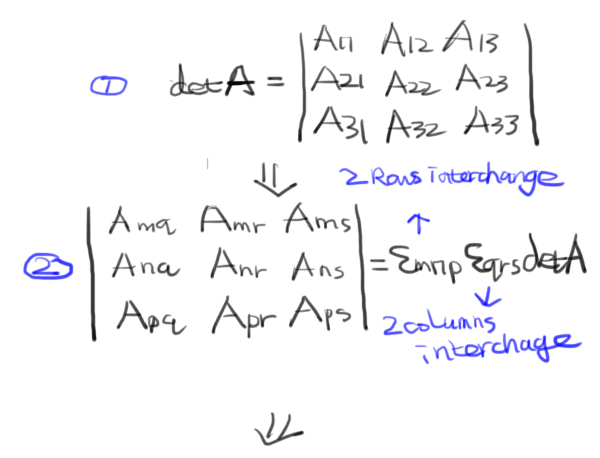 ① det A = | A11 A12 A13 |
| A21 A22 A23 |
| A31 A32 A33 |
⇓ 2 Rows interchange
↑
② | Amq Amr Ams |
| Anq Anr Ans | = εmnp εqrs det A
| Apq Apr Aps |
↓
2 columns
interchage
⇓